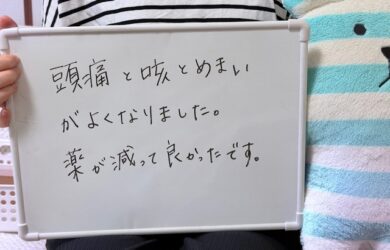 頭痛と咳とめまい
がよくなりました。
薬が減って良かったです。